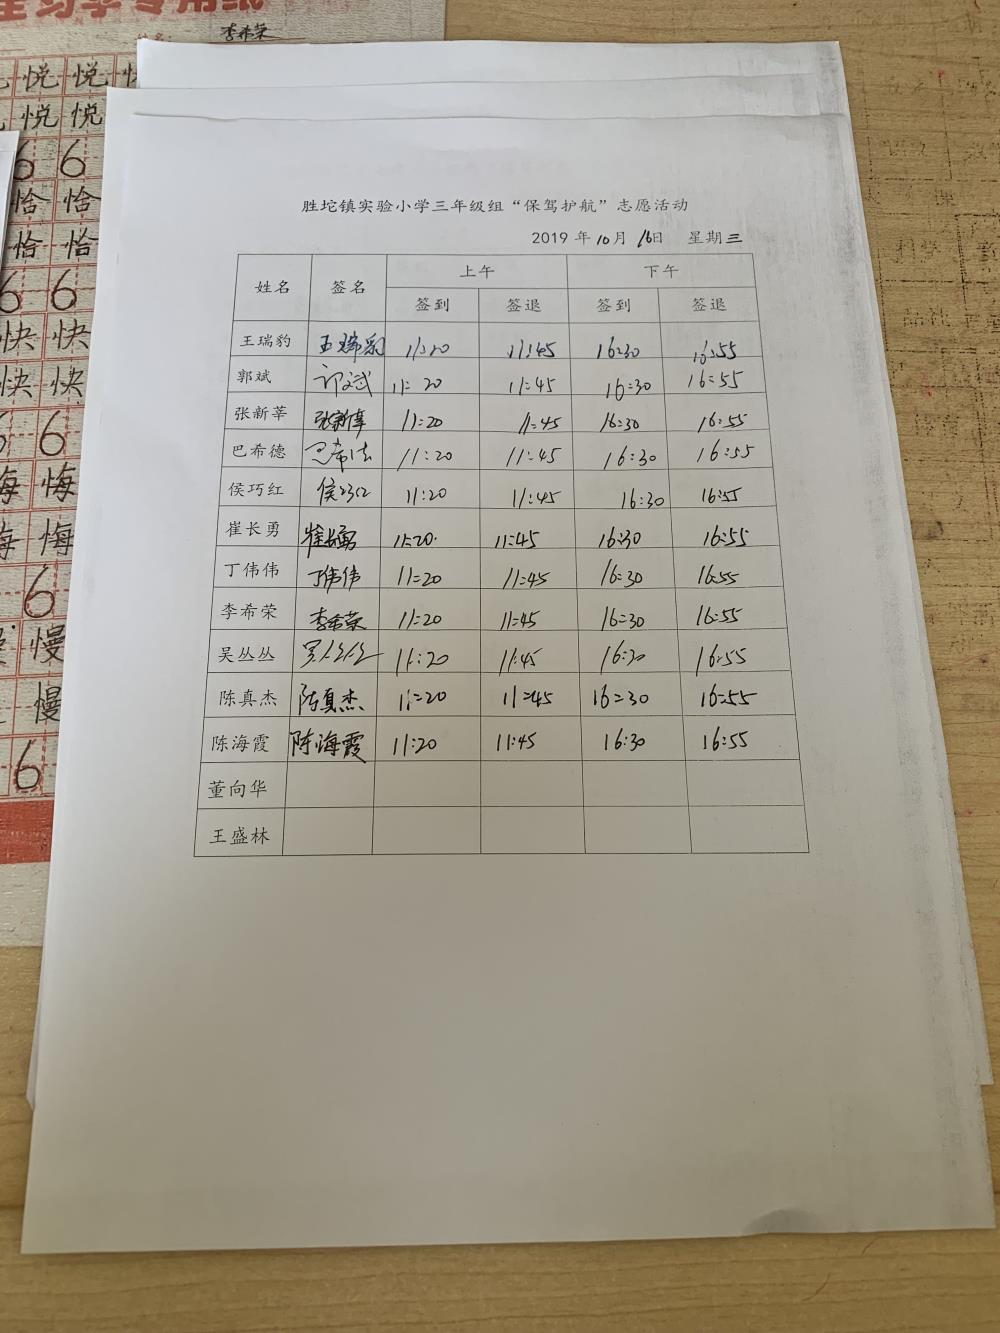 李希荣
悦 悦
悦 悦
6 6
恰 恰
恰 恰
6 6
快 快
快 快
6
悔 悔
悔 悔
6
慢
慢
6
胜坨镇实验小学三年级组“保驾护航”志愿活动
2019 年 10 月 16日 星期三
姓名 签名 上午 下午
签到 签退 签到 签退
王瑞豹 王瑞豹 11:20 11:45 16:30 16:55
郭斌 郭斌 11:20 11:45 16:30 16:55
张新莘 张新莘 11:20 11:45 16:30 16:55
巴希德 巴希德 11:20 11:45 16:30 16:55
侯巧红 侯巧红 11:20 11:45 16:30 16:55
崔长勇 崔长勇 11:20 11:45 16:30 16:55
丁伟伟 丁伟伟 11:20 11:45 16:30 16:55
李希荣 李希荣 11:20 11:45 16:30 16:55
吴丛丛 吴丛丛 11:20 11:45 16:30 16:55
陈真杰 陈真杰 11:20 11:45 16:30 16:55
陈海霞 陈海霞 11:20 11:45 16:30 16:55
董向华
王盛林